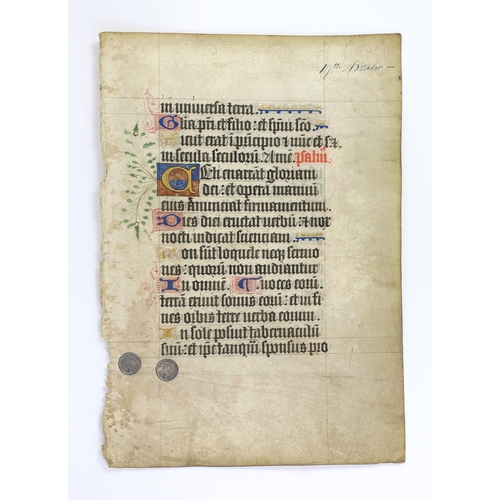 17th October —
in universa terra
Glia pri et filio: et spiui sco
icut erat i principio et nuc et sx
in secula seculoru Ame psalm
Celi enarrat gloriam
dei: et opera manuu
eius annunciat firmamentum
Dies diei eructat verbu: et nox
nocti indicat scienciam
on sut loquele neq sermo
nes: quoru non audiantur
In omne Tuoces coru:
terra exivit sonus coru: et in fi
nes orbis terre verba eorum
In sole posuit tabernaculu
suu: et ipe tanqua sponsus pro